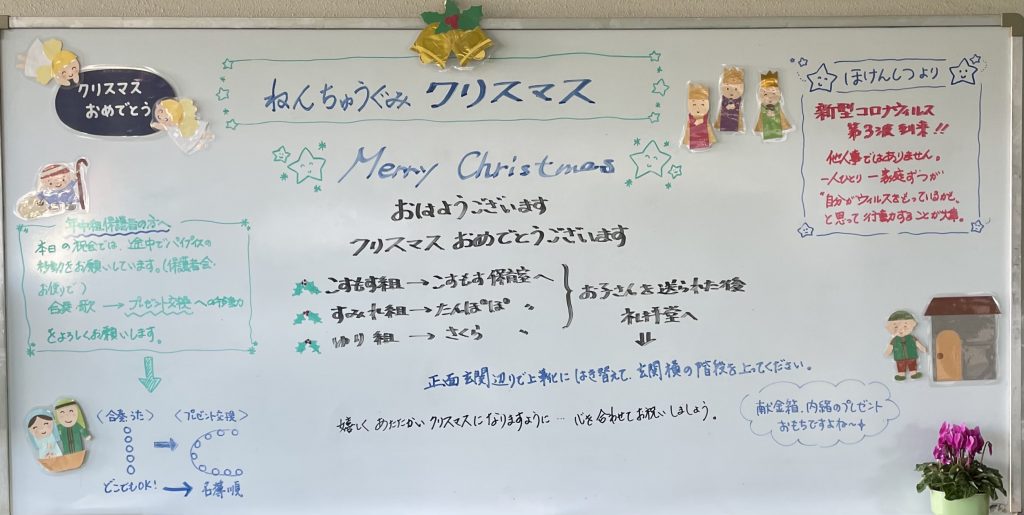 クリスマス
おめでとう
ねんちゅうぐみ クリスマス
Merry Christmas
おはようございます
クリスマス おめでとうございます
こすもす組→こすもす保育室へ
すみれ組→たんぽぽ 〃
ゆり組→さくら 〃
お子さんを送られた後
礼拝堂へ
正面玄関辺りで上靴にはき替えて、玄関横の階段を上ってください。
嬉しく あたたかい クリスマスになりますように… 心を合わせてお祝いしましょう。
献金箱、内緒のプレゼント
おもちですよね〜
年中組保護者の方へ
本日の祝会では、途中でパイプイスの
移動をお願いしています。(保護者会・
お便りで)
合奏・歌 → プレゼント交換 への移動
をよろしくお願いします。
〈合奏・うた〉
〈プレゼント交換〉
どこでもOK! → 名簿順
ほけんしつより
新型コロナウィルス
第3波到来!!
他人事ではありません。
一人ひとり 一家庭ずつが
“自分がウィルスをもっているかも、
と思って行動することが大事。